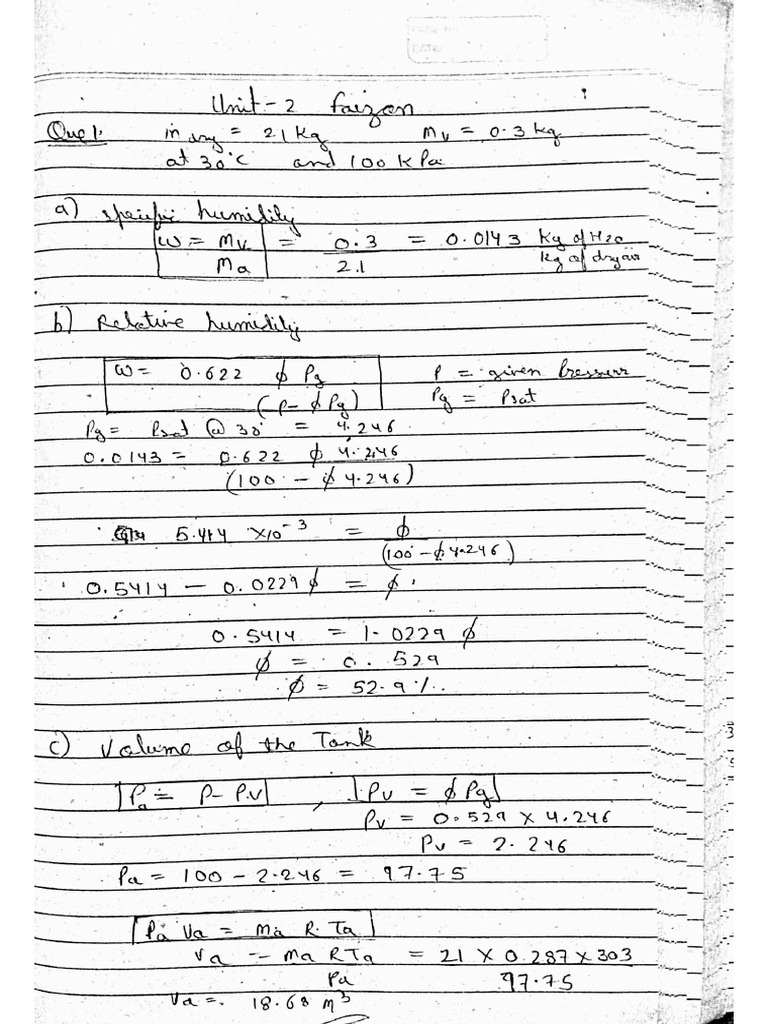 Unit - 2 Faizan
Que 1. m dry = 21 kg mv = 0.3 kg
at 30°C and 100 kPa
a) specific humidity
ω = Mv = 0.3 = 0.0143 kg of H2O
Ma 2.1 kg of dry air
b) Relative humidity
ω = 0.622 ϕ Pg P = given Pressure
(P - ϕ Pg) Pg = Psat
Pg = Psat @ 30° = 4.246
0.0143 = 0.622 ϕ 4.246
(100 - ϕ 4.246)
5.414 × 10⁻³ = ϕ
(100 - ϕ 4.246)
0.5414 - 0.0229 ϕ = ϕ
0.5414 = 1.0229 ϕ
ϕ = 0.529
ϕ = 52.9 %.
c) Volume of the Tank
Pa = P - Pv , Pv = ϕ Pg
Pv = 0.529 × 4.246
Pv = 2.246
Pa = 100 - 2.246 = 97.75
Pa Va = Ma R. Ta
Va = Ma R Ta = 21 × 0.287 × 303
Pa 97.75
Va = 18.68 m³